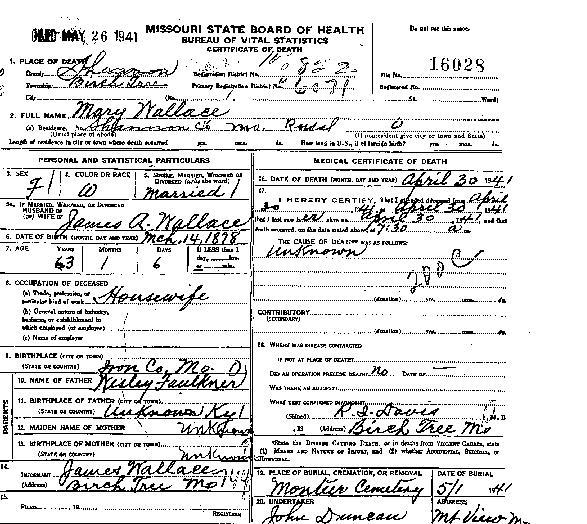 FILED MAY 26 1941
MISSOURI STATE BOARD OF HEALTH
BUREAU OF VITAL STATISTICS
CERTIFICATE OF DEATH
Do not use this space.
1. PLACE OF DEATH
County Shannon
Registration District No. 822
File No. 16028
Township Birch Tree
Primary Registration District No. 6071
Registered No.
City No. St. Ward)
2. FULL NAME Mary Wallace
(a) Residence, No. Shannon Co Mo. Rural
(Usual place of abode) (If nonresident give city or town and State)
Length of residence in city or town where death occurred yrs. mos. ds. How long in U.S., if of foreign birth? yrs. mos. ds.
PERSONAL AND STATISTICAL PARTICULARS
3. SEX F
4. COLOR OR RACE W
5. SINGLE, MARRIED, WIDOWED OR DIVORCED (write the word) Married
5a. IF MARRIED, WIDOWED, OR DIVORCED
HUSBAND OF
(OR) WIFE OF James A. Wallace
6. DATE OF BIRTH (MONTH, DAY AND YEAR) Mch. 14, 1878
7. AGE YEARS MONTHS DAYS If LESS than 1 day, hrs. or min.
63 1 6
8. OCCUPATION OF DECEASED
(a) Trade, profession, or particular kind of work Housewife
(b) General nature of industry, business, or establishment in which employed (or employer)
(c) Name of employer
9. BIRTHPLACE (CITY OR TOWN)
(STATE OR COUNTRY) Iron Co, Mo.
PARENTS
10. NAME OF FATHER Risley Faulkner
11. BIRTHPLACE OF FATHER (CITY OR TOWN)
(STATE OR COUNTRY) Unknown Ky
12. MAIDEN NAME OF MOTHER Unknown
13. BIRTHPLACE OF MOTHER (CITY OR TOWN)
(STATE OR COUNTRY) Unknown
14.
INFORMANT James Wallace
(Address) Birch Tree Mo
15.
FILED 19
REGISTRAR
MEDICAL CERTIFICATE OF DEATH
16. DATE OF DEATH (MONTH, DAY AND YEAR) April 30 1941
17.
I HEREBY CERTIFY, That I attended deceased from April
30 1941 to April 30 1941
that I last saw her alive on April 30 1941, and that
death occurred, on the date stated above, at 7:30 a m.
THE CAUSE OF DEATH WAS AS FOLLOWS:
Unknown
200C
(duration) yrs. mos. ds.
CONTRIBUTORY
(SECONDARY)
(duration) yrs. mos. ds.
18. WHERE WAS DISEASE CONTRACTED
IF NOT AT PLACE OF DEATH?
DID AN OPERATION PRECEDE DEATH? No DATE OF
WAS THERE AN AUTOPSY?
WHAT TEST CONFIRMED DIAGNOSIS?
(Signed) R. S. Davis M. D.
, 19 (Address) Birch Tree Mo
*State the DISEASE CAUSING DEATH, or in deaths from VIOLENT CAUSES, state
(1) MEANS AND NATURE OF INJURY, and (2) whether ACCIDENTAL, SUICIDAL, or
19. PLACE OF BURIAL, CREMATION, OR REMOVAL DATE OF BURIAL
Montier Cemetery 5/1 41
20. UNDERTAKER ADDRESS
John Duncan Mt View M